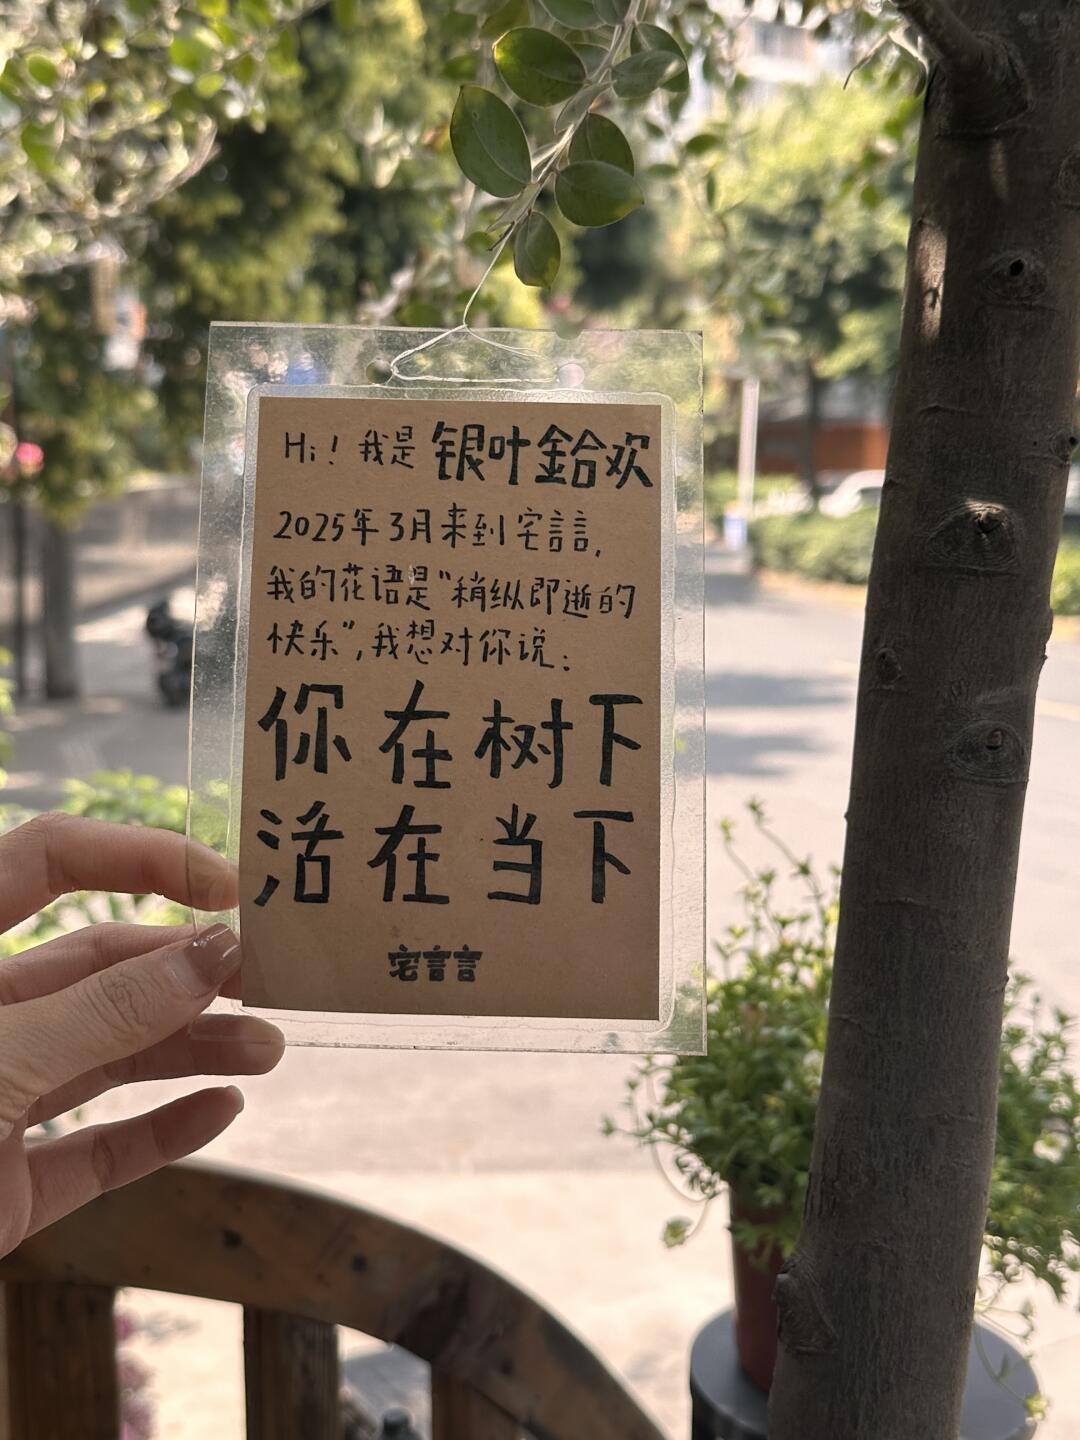 Hi！我是 银叶鉿欢
2025年3月来到宅言言,
我的花语是“稍纵即逝的
快乐”,我想对你说：
你在树下
活在当下
宅言言